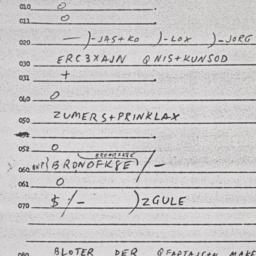 010 O
011 O
020 — )-JAS+KO )-LOX )-JORG
030 ERC3XAJN QNIS+KUNSOD
031 +
040 O
050 ZUMERS+PRINKLAX
052 O
060 ANT{BRONOFKSE}/—
061 O
070 $/— )ZGULE
080 BLOTER DER